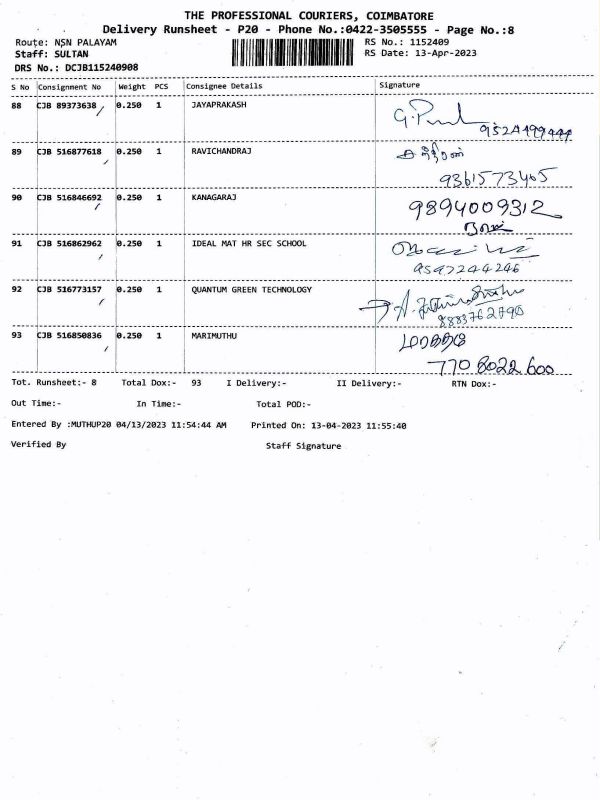 THE PROFESSIONAL COURIERS, COIMBATORE
Delivery Runsheet - P20 - Phone No.:0422-3505555 - Page No.:8
Route: NSN PALAYAM RS No.: 1152409
Staff: SULTAN RS Date: 13-Apr-2023
DRS No.: DCJB115240908
S No Consignment No Weight PCS Consignee Details Signature
88 CJB 89373638 0.250 1 JAYAPRAKASH
89 CJB 516877618 0.250 1 RAVICHANDRAJ
9361573465
90 CJB 516846692 0.250 1 KANAGARAJ 9894009312
91 CJB 516862962 0.250 1 IDEAL MAT HR SEC SCHOOL
9597244246
92 CJB 516773157 0.250 1 QUANTUM GREEN TECHNOLOGY
93 CJB 516850836 0.250 1 MARIMUTHU
770 8022 600
Tot. Runsheet:- 8 Total Dox:- 93 I Delivery:- II Delivery:- RTN Dox:-
Out Time:- In Time:- Total POD:-
Entered By :MUTHUP20 04/13/2023 11:54:44 AM Printed On: 13-04-2023 11:55:40
Verified By Staff Signature